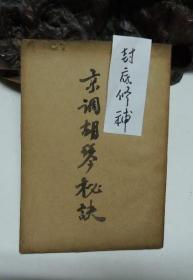 京调胡琴秘訣
封底修補